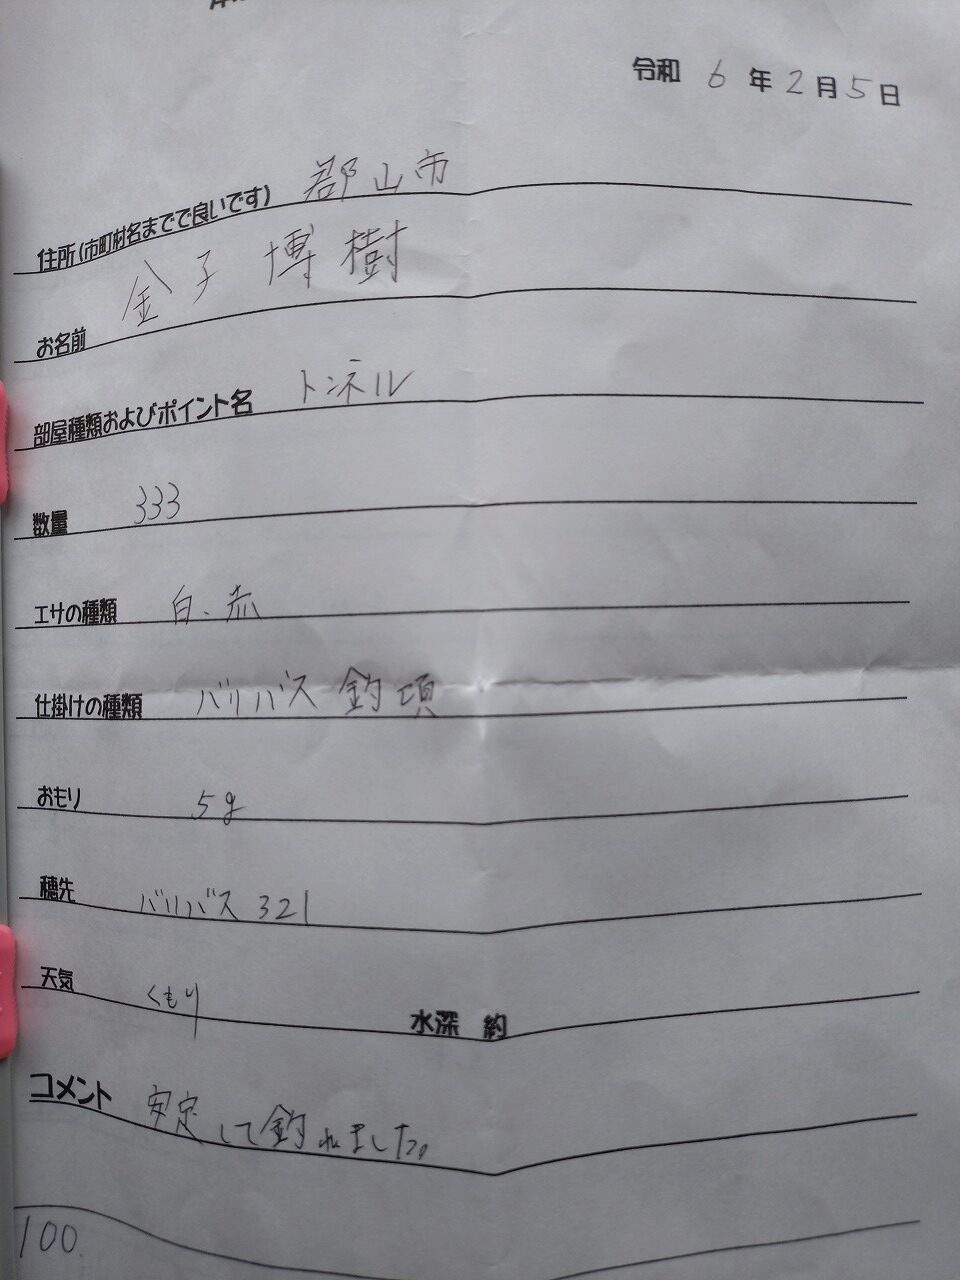 令和 6 年 2 月 5 日
住所(市町村名までで良いです) 郡山市
お名前 金子 博樹
部屋種類およびポイント名 トンネル
数量 333
エサの種類 白、赤
仕掛けの種類 バリバス 釣頃
おもり 5g
穂先 バリバス 321
天気 くもり 水深 約
コメント 安定して釣れました。
100